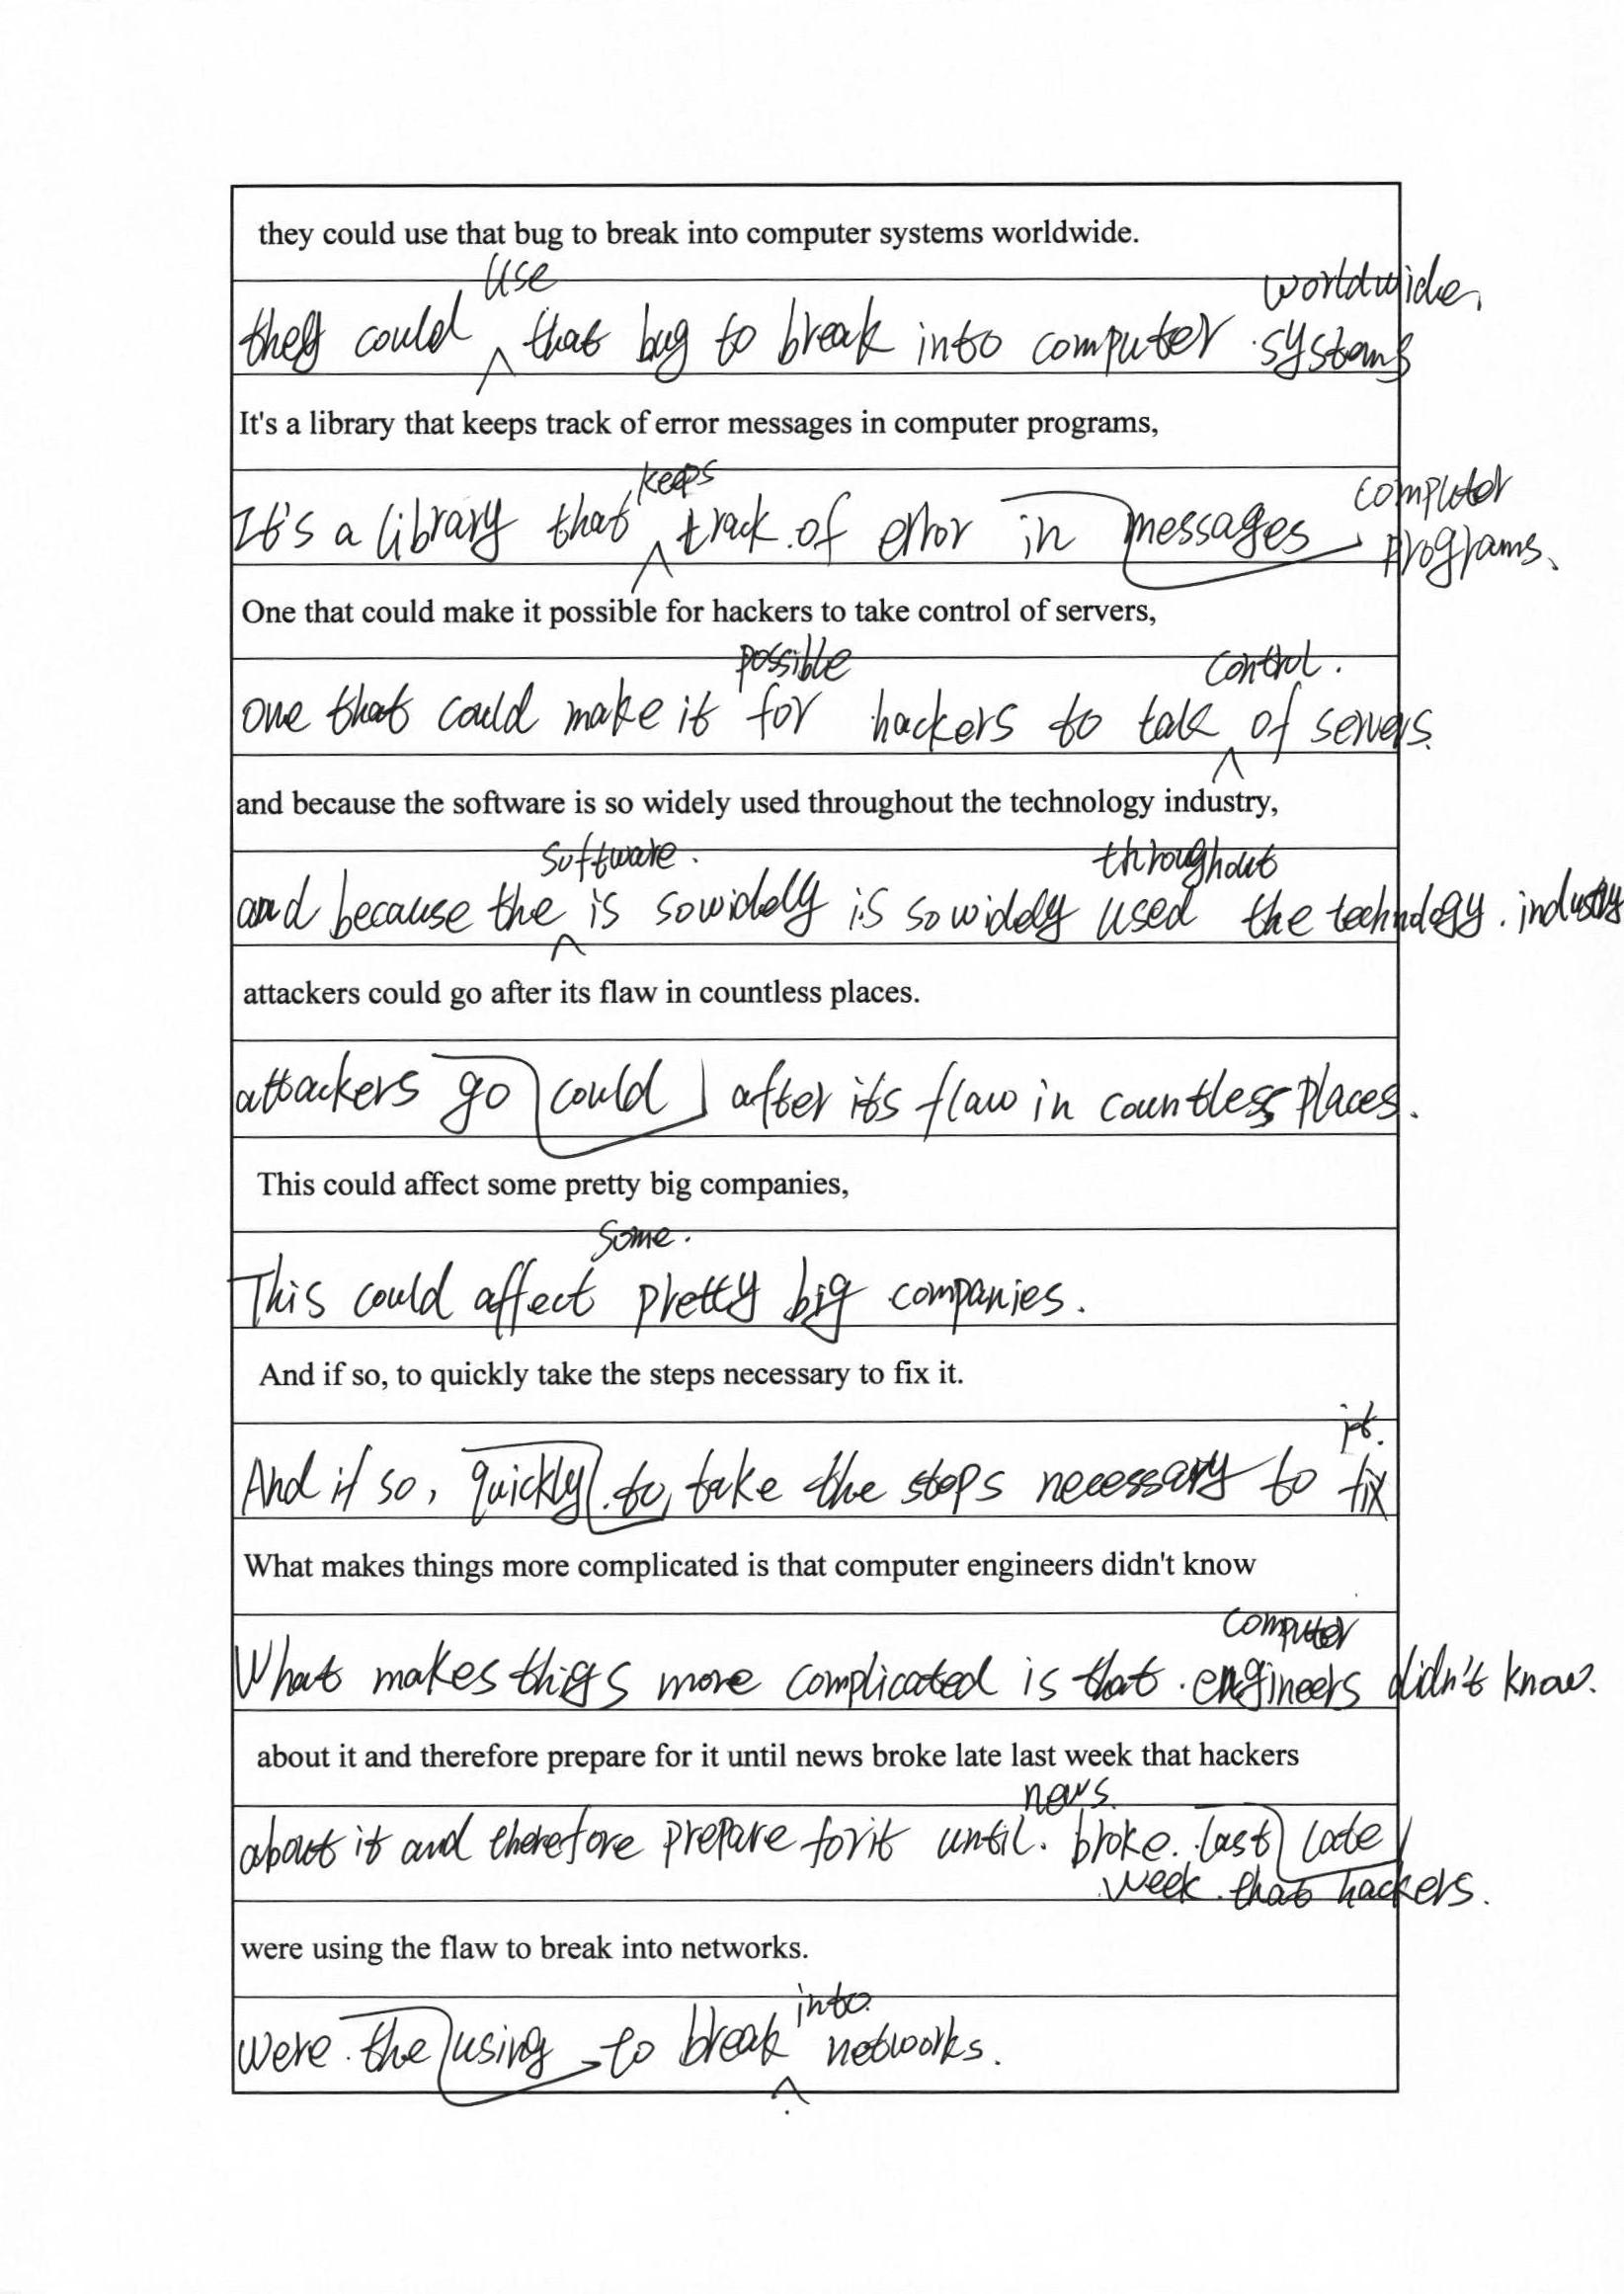 they could use that bug to break into computer systems worldwide.
they could use that bug to break into computer systems worldwide.
It's a library that keeps track of error messages in computer programs,
It's a library that keeps track of error in messages computer programs.
One that could make it possible for hackers to take control of servers,
one that could make it possible for hackers to take control of servers.
and because the software is so widely used throughout the technology industry,
and because the software is so widely is so widely used throughout the technology. industry
attackers could go after its flaw in countless places.
attackers go could after its flaw in countless places.
This could affect some pretty big companies,
This could affect some pretty big companies.
And if so, to quickly take the steps necessary to fix it.
And if so, quickly to take the steps necessary to fix it.
What makes things more complicated is that computer engineers didn't know
What makes thigs more complicated is that computer engineers didn't know.
about it and therefore prepare for it until news broke late last week that hackers
about it and therefore prepare for it until news broke last late week that hackers.
were using the flaw to break into networks.
were the using to break into networks.